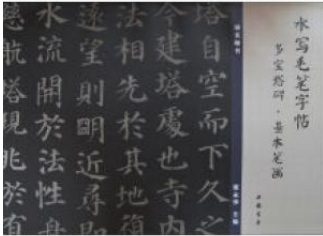 水写毛笔字帖
多宝塔碑·基本笔画
塔自空而下久之
今建塔處也寺内
法相先於其地復
遠望則明近尋即
水流開於法性舟
慈航塔現兆於有